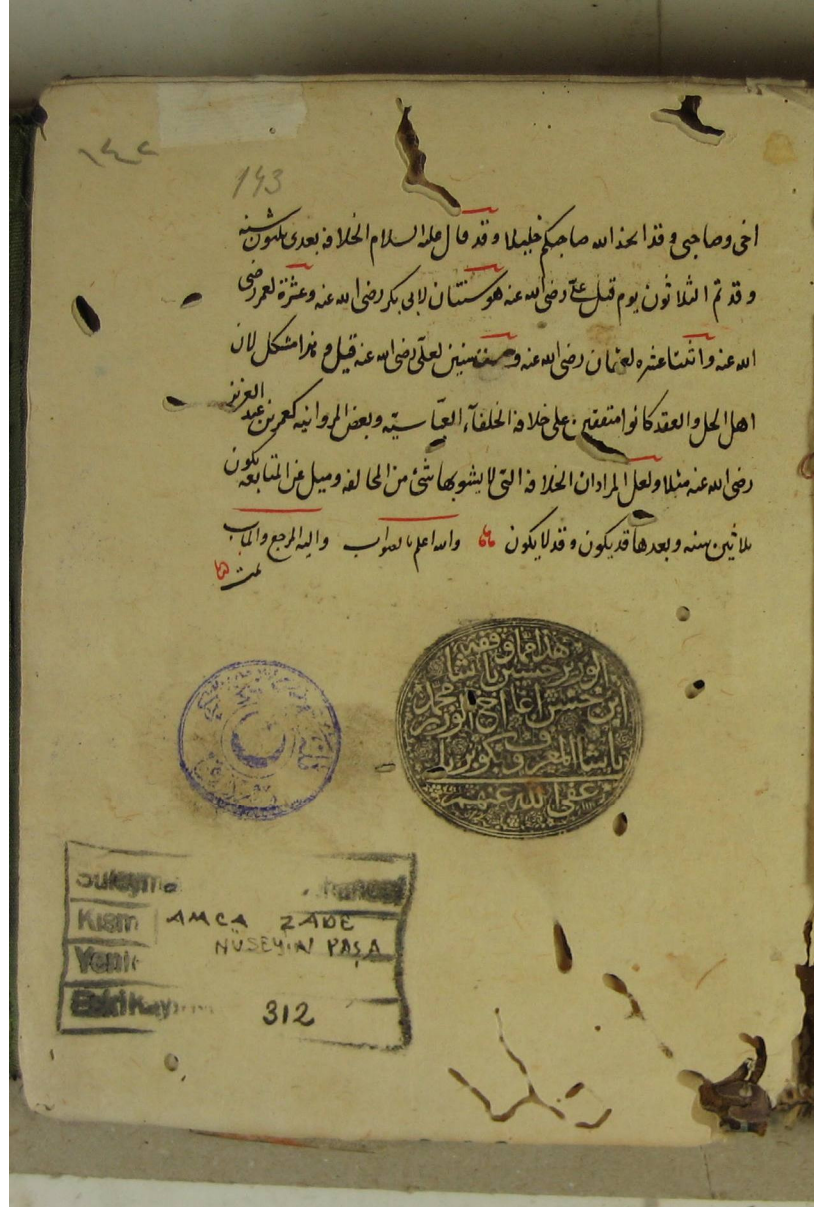 ١٤٢
143
اخى وصاحبى وقد اتخذ الله صاحبكم خليلا وقد قال عليه السلام الخلافة بعدى ثلثون سنة
وقد تم الثلاثون يوم قتل على رضى الله عنه هو سنتان لابى بكر رضى الله عنه وعشرة لعمر رضى
الله عنه واثنتا عشره لعثمان رضى الله عنه وست سنين لعلى رضى الله عنه قيل وهذا مشكل لان
اهل الحل والعقد كانوا متفقين على خلافة الخلفآء العباسيه وبعض المروانيه كعمر بن عبد العزيز
رضى الله عنه مثلا ولعل المراد ان الخلافة التى لا يشوبها شئ من المخالفه وميل عن المتابعه يكون
ثلاثين سنه وبعدها قد يكون وقد لا يكون والله اعلم بالصواب واليه المرجع والمآب
تمت
هذا مما وقفه
الوزير حسين پاشا
ابن حسن اغا اخ الوزير محمد
پاشا المعروف بكوپريلى
عفى الله عنهم
Süleyma
Kısmı AMCA ZADE
HUSEYiN PAŞA
Yeni
Eski Kayı 312